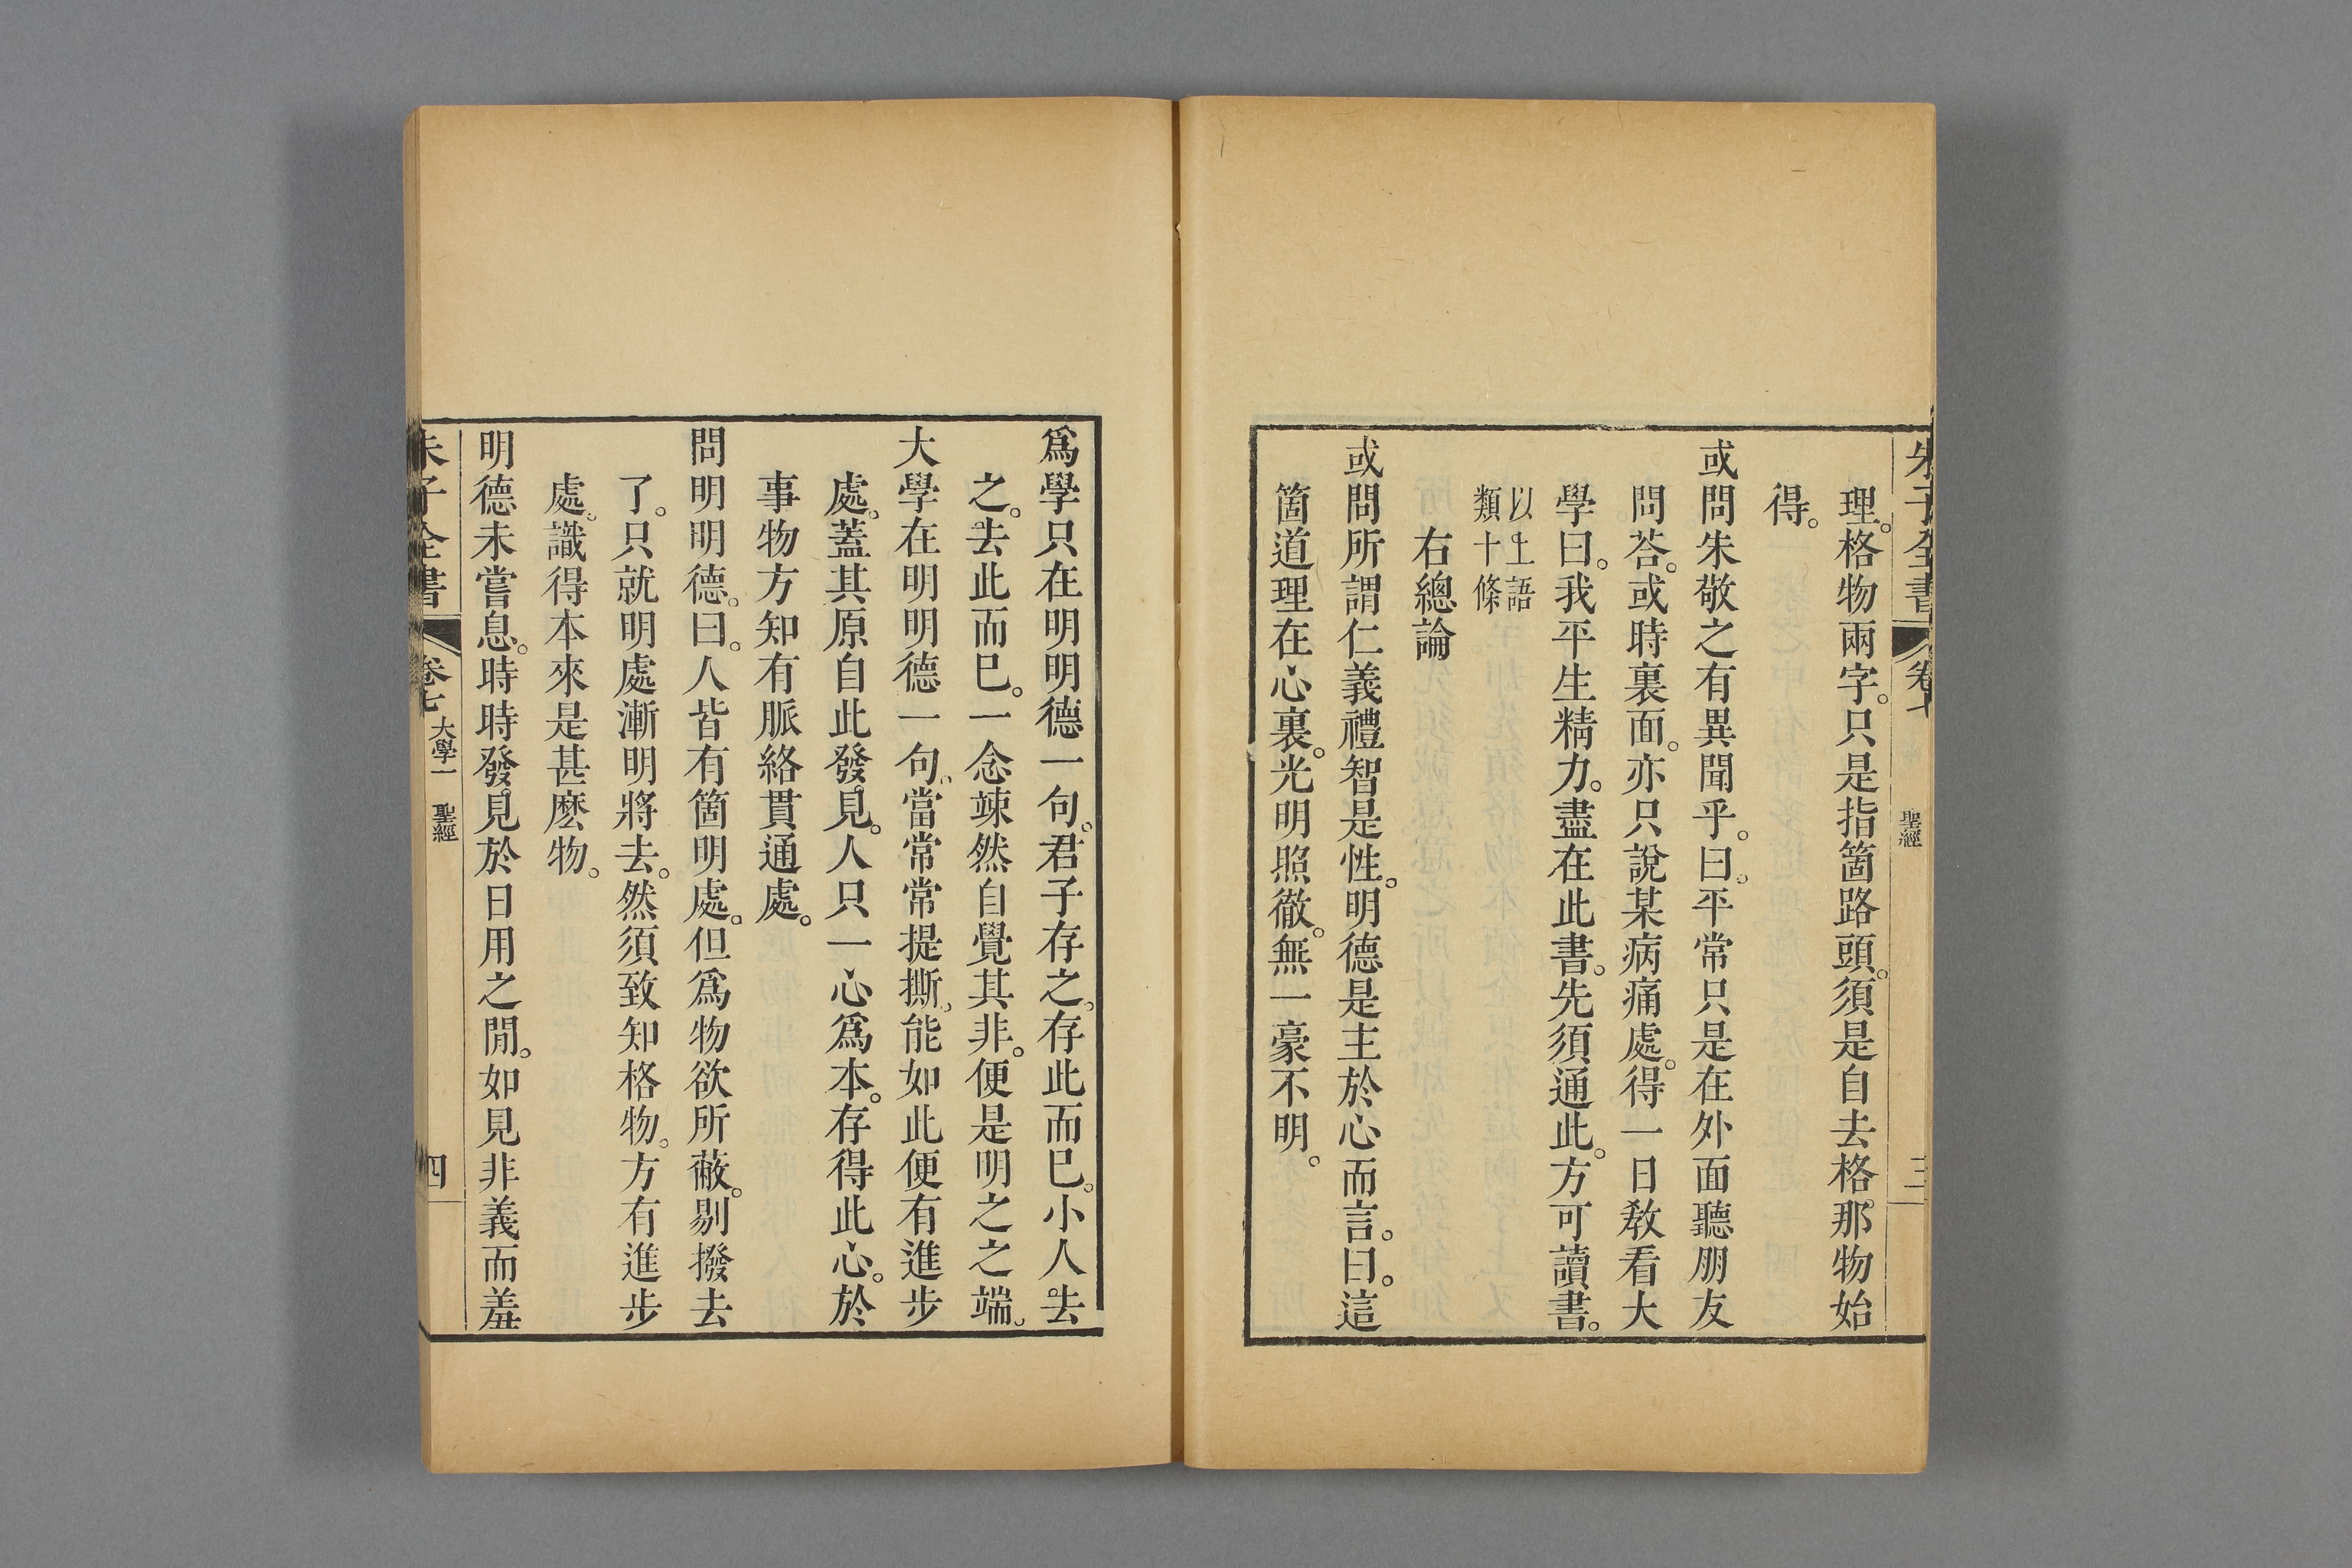 朱子全書 卷七 聖經 三
理。格物兩字。只是指箇路頭。須是自去格那物始
得。
或問朱敬之有異聞乎。曰。平常只是在外面聽朋友
問荅。或時裏面。亦只說某病痛處。得一日敎看大
學曰。我平生精力。盡在此書。先須通此。方可讀書。
以上語
類十條
右總論
或問所謂仁義禮智是性。明德是主於心而言。曰。這
箇道理在心裏。光明照徹。無一豪不明。
爲學只在明明德一句。君子存之。存此而巳。小人去
之。去此而巳。一念竦然自覺其非。便是明之之端。
大學在明明德一句。當常常提撕。能如此便有進步
處。蓋其原自此發見。人只一心爲本。存得此心。於
事物方知有脈絡貫通處。
問明明德。曰。人皆有箇明處。但爲物欲所蔽。剔撥去
了。只就明處漸明將去。然須致知格物。方有進步
處。識得本來是甚麽物。
明德未嘗息。時時發見於日用之閒。如見非義而羞
朱子全書 卷七 大學一 聖經 四